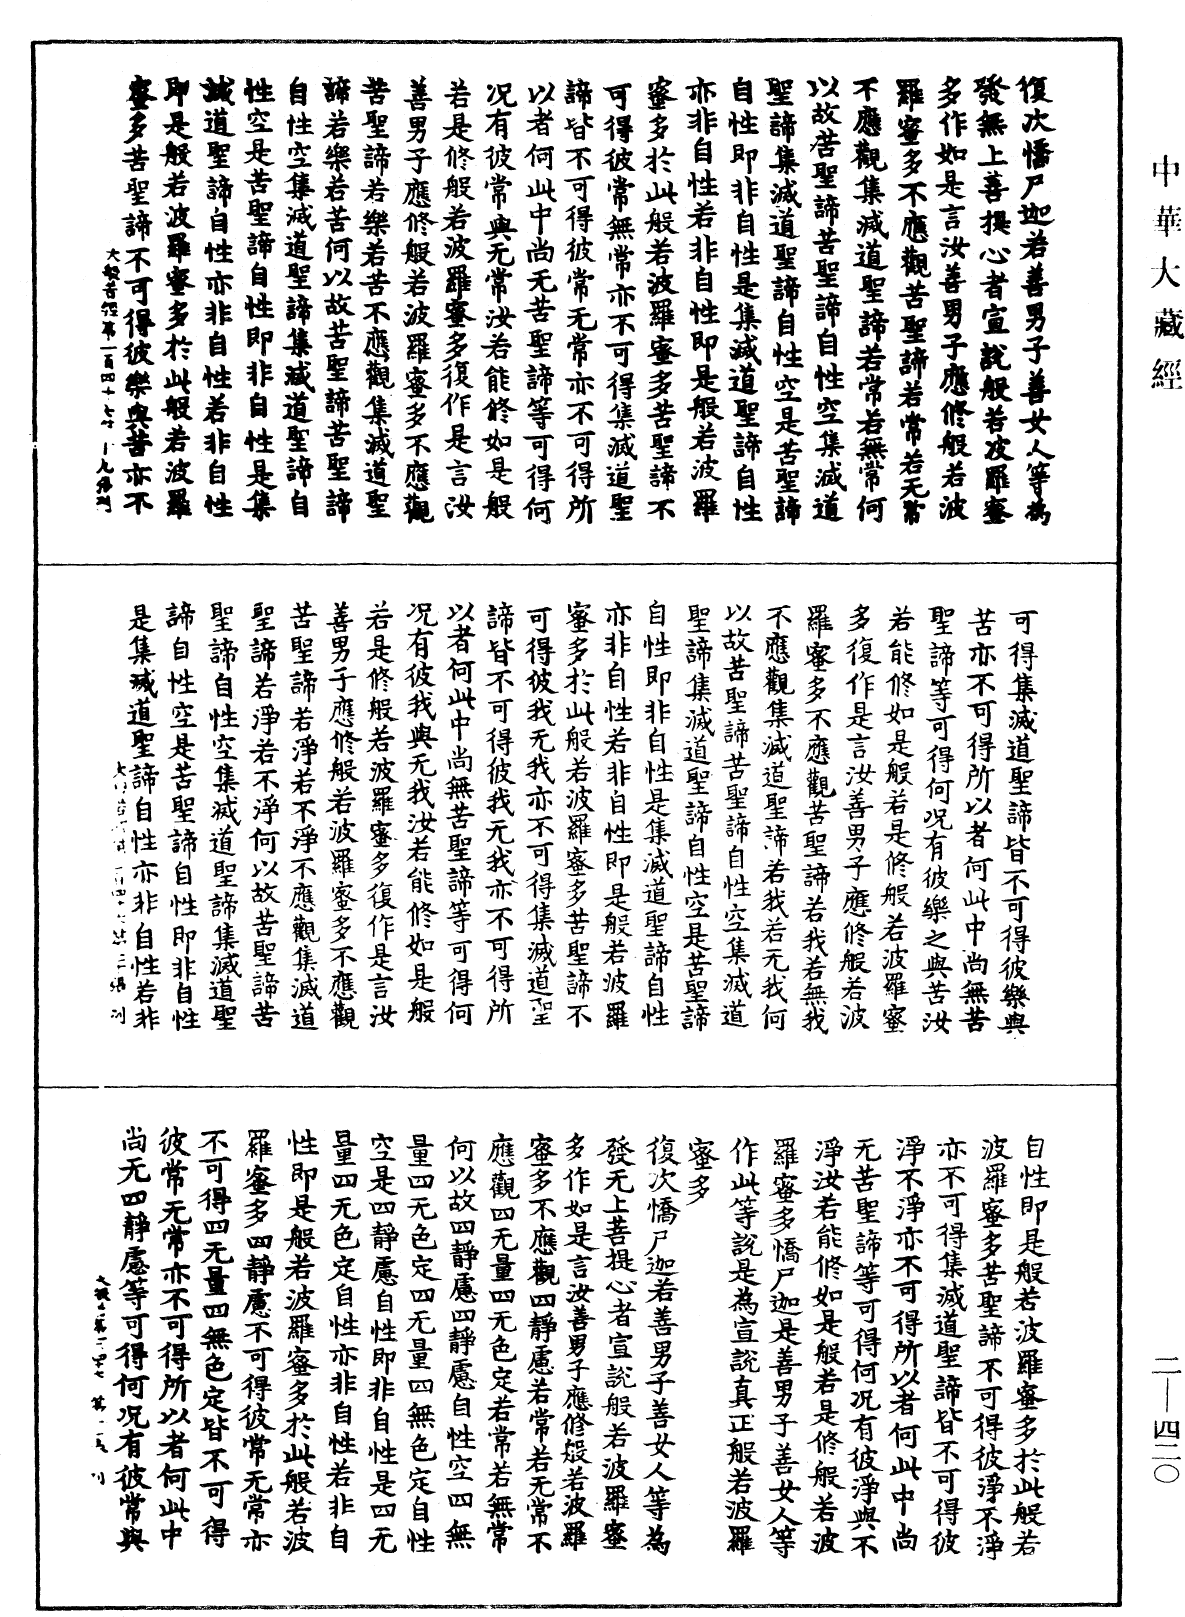 中華大藏經
復次憍尸迦若善男子善女人等為
發無上菩提心者宣說般若波羅蜜
多作如是言汝善男子應修般若波
羅蜜多不應觀苦聖諦若常若无常
不應觀集滅道聖諦若常若無常何
以故苦聖諦苦聖諦自性空集滅道
聖諦集滅道聖諦自性空是苦聖諦
自性即非自性是集滅道聖諦自性
亦非自性若非自性即是般若波羅
蜜多於此般若波羅蜜多苦聖諦不
可得彼常無常亦不可得集滅道聖
諦皆不可得彼常无常亦不可得所
以者何此中尚无苦聖諦等可得何
况有彼常與无常汝若能修如是般
若是修般若波羅蜜多復作是言汝
善男子應修般若波羅蜜多不應觀
苦聖諦若樂若苦不應觀集滅道聖
諦若樂若苦何以故苦聖諦苦聖諦
自性空集滅道聖諦集滅道聖諦自
性空是苦聖諦自性即非自性是集
滅道聖諦自性亦非自性若非自性
即是般若波羅蜜多於此般若波羅
蜜多苦聖諦不可得彼樂與苦亦不
可得集滅道聖諦皆不可得彼樂與
苦亦不可得所以者何此中尚無苦
聖諦等可得何况有彼樂之與苦汝
若能修如是般若是修般若波羅蜜
多復作是言汝善男子應修般若波
羅蜜多不應觀苦聖諦若我若無我
不應觀集滅道聖諦若我若无我何
以故苦聖諦苦聖諦自性空集滅道
聖諦集滅道聖諦自性空是苦聖諦
自性即非自性是集滅道聖諦自性
亦非自性若非自性即是般若波羅
蜜多於此般若波羅蜜多苦聖諦不
可得彼我无我亦不可得集滅道聖
諦皆不可得彼我无我亦不可得所
以者何此中尚無苦聖諦等可得何
况有彼我與无我汝若能修如是般
若是修般若波羅蜜多復作是言汝
善男子應修般若波羅蜜多不應觀
苦聖諦若淨若不淨不應觀集滅道
聖諦若淨若不淨何以故苦聖諦苦
聖諦自性空集滅道聖諦集滅道聖
諦自性空是苦聖諦自性即非自性
是集滅道聖諦自性亦非自性若非
自性即是般若波羅蜜多於此般若
波羅蜜多苦聖諦不可得彼淨不淨
亦不可得集滅道聖諦皆不可得彼
淨不淨亦不可得所以者何此中尚
无苦聖諦等可得何况有彼淨與不
淨汝若能修如是般若是修般若波
羅蜜多憍尸迦是善男子善女人等
作此等說是為宣說真正般若波羅
蜜多
復次憍尸迦若善男子善女人等為
發无上菩提心者宣說般若波羅蜜
多作如是言汝善男子應修般若波羅
蜜多不應觀四靜慮若常若无常不
應觀四无量四无色定若常若無常
何以故四靜慮四靜慮自性空四無
量四无色定四无量四無色定自性
空是四靜慮自性即非自性是四无
量四无色定自性亦非自性若非自
性即是般若波羅蜜多於此般若波
羅蜜多四靜慮不可得彼常无常亦
不可得四无量四無色定皆不可得
彼常无常亦不可得所以者何此中
尚无四靜慮等可得何况有彼常與
二—四二〇